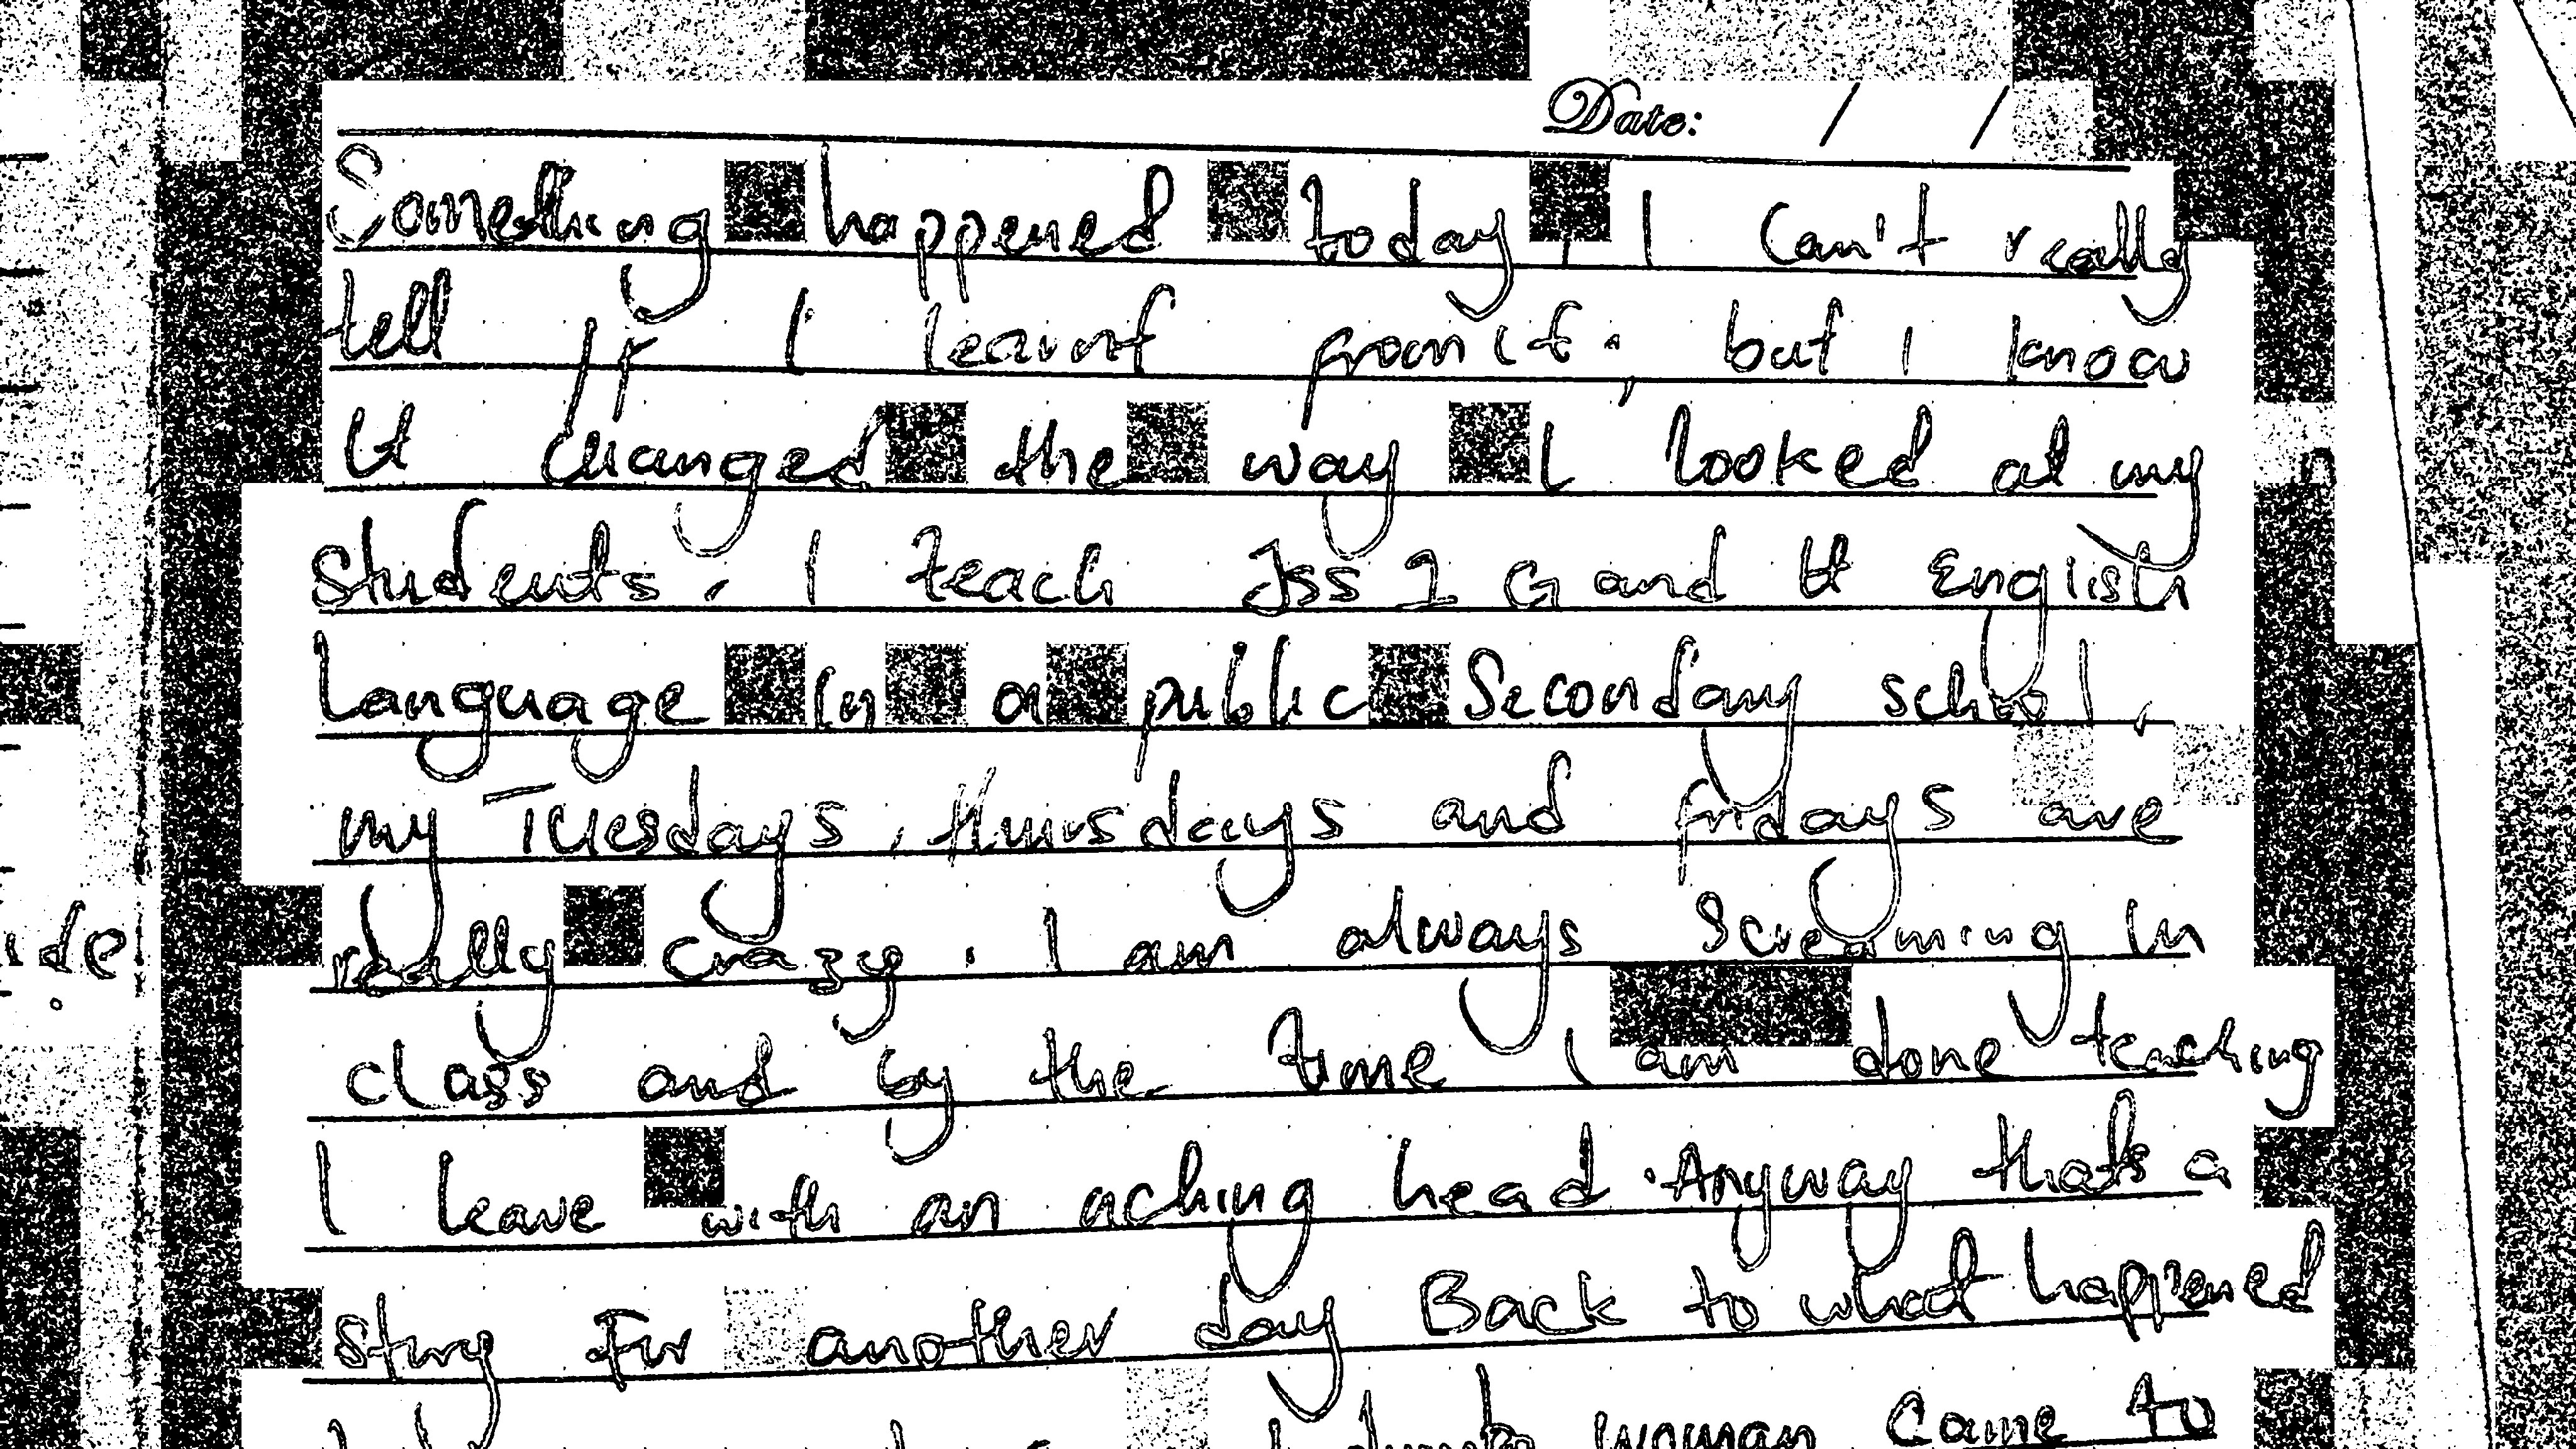 Date: / /
Something happened today, I can't really
tell if I learnt from it; but I know
it changed the way I looked at my
students. I teach Jss 1 G and H English
language in a public Secondary school,
my Tuesdays, thursdays and fridays are
really crazy. I am always screaming in
class and by the time I am done teaching
I leave with an aching head. Anyway that's a
story For another day Back to what happened
woman came to
ide